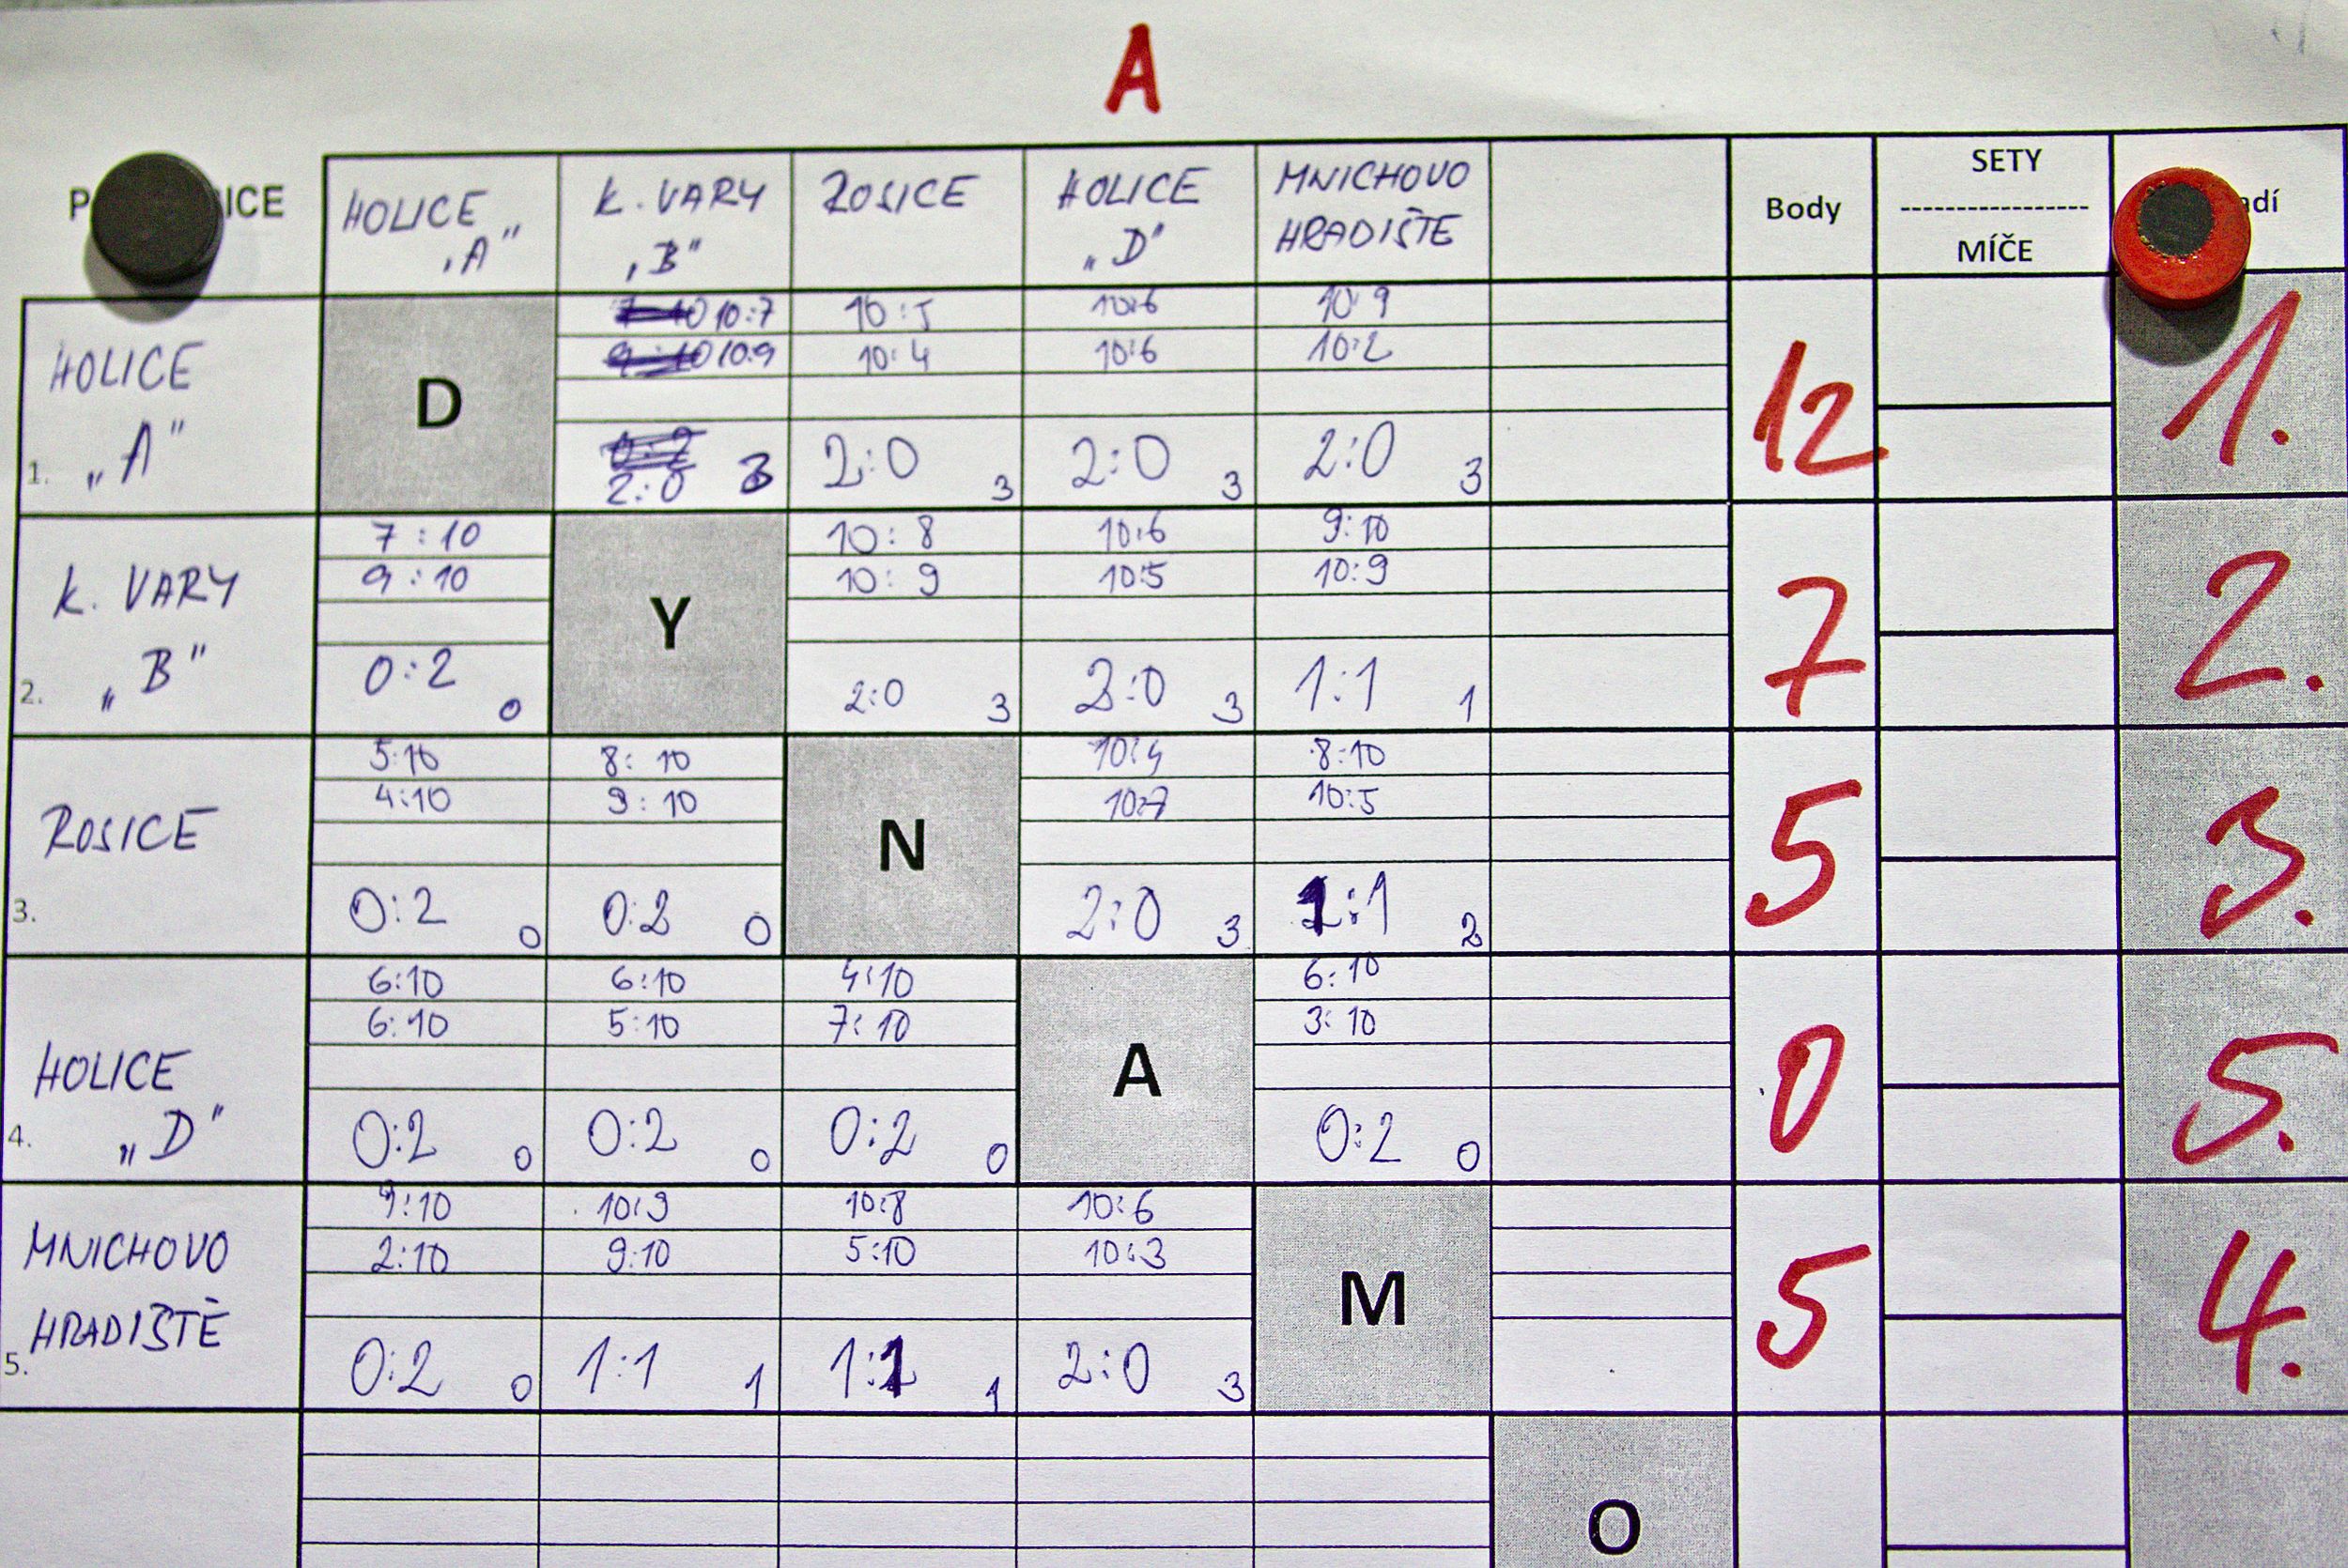 A
HOLICE „A"
K. VARY „B"
ROSICE
HOLICE „D"
MNICHOVO HRADIŠTE
Body
SETY
----------------
MÍČE
HOLICE „A"
1.
D
10:7
10:9
2:0 3
10:5
10:4
2:0 3
10:6
10:6
2:0 3
10:9
10:2
2:0 3
12
1.
K. VARY „B"
2.
7:10
9:10
0:2 0
Y
10:8
10:9
2:0 3
10:6
10:5
2:0 3
9:10
10:9
1:1 1
7
2.
ROSICE
3.
5:10
4:10
0:2 0
8:10
9:10
0:2 0
N
10:4
10:7
2:0 3
8:10
10:5
1:1 2
5
3.
HOLICE „D"
4.
6:10
6:10
0:2 0
6:10
5:10
0:2 0
4:10
7:10
0:2 0
A
6:10
3:10
0:2 0
0
5.
MNICHOVO
HRADIŠTĚ
5.
9:10
2:10
0:2 0
10:9
9:10
1:1 1
10:8
5:10
1:1 1
10:6
10:3
2:0 3
M
5
4.
O